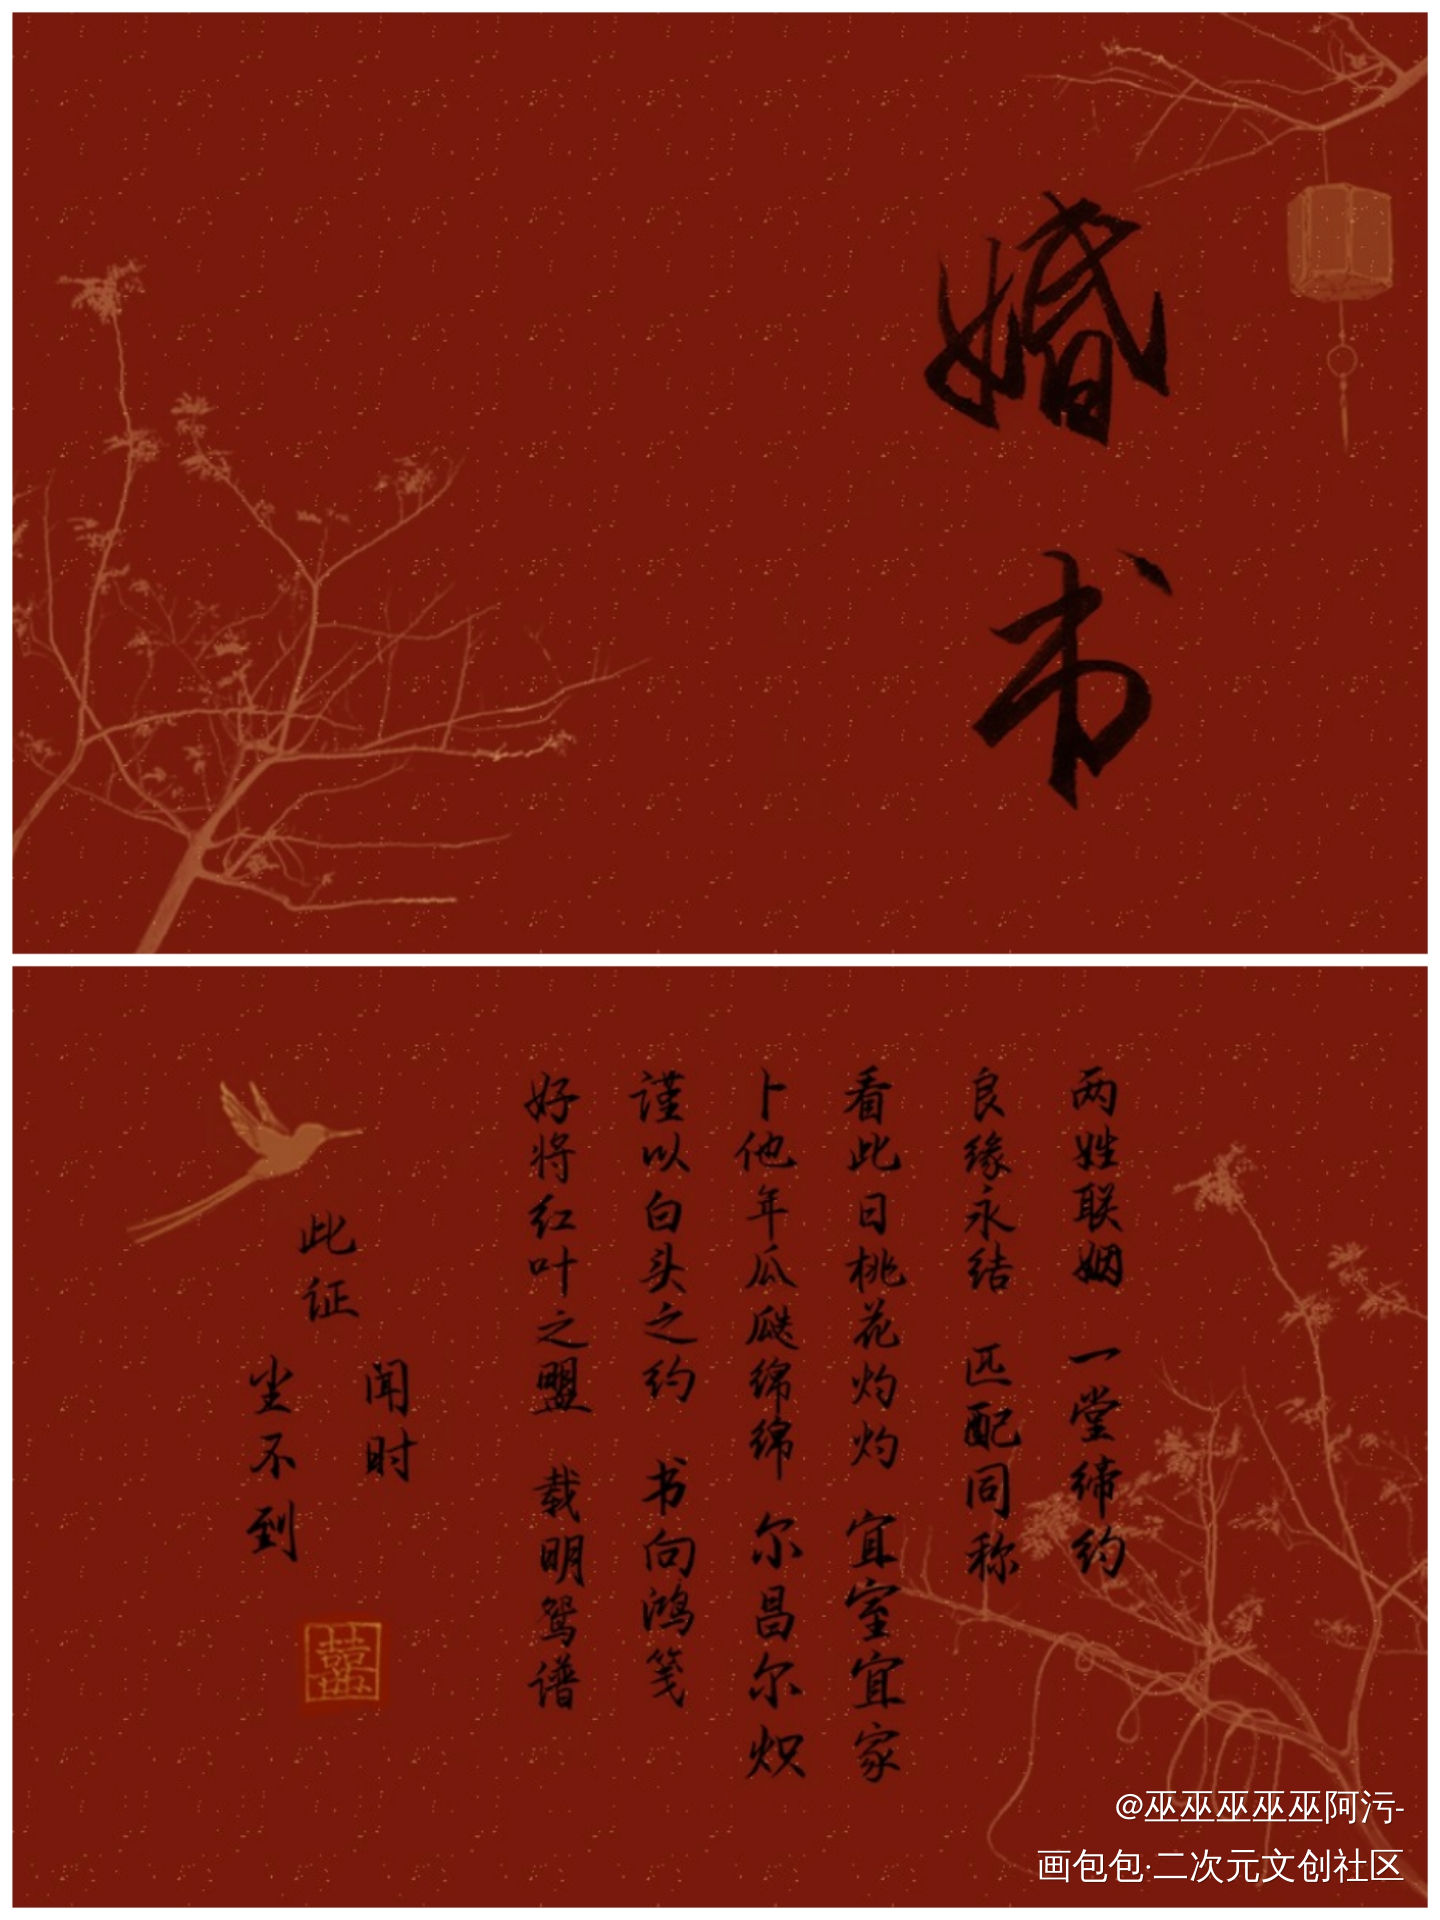 婚书
两姓联姻 一堂缔约
良缘永结 匹配同称
看此日桃花灼灼 宜室宜家
卜他年瓜瓞绵绵 尔昌尔炽
谨以白头之约 书向鸿笺
好将红叶之盟 载明鸳谱
此证
闻时
尘不到
囍
@巫巫巫巫巫阿污-
画包包·二次元文创社区